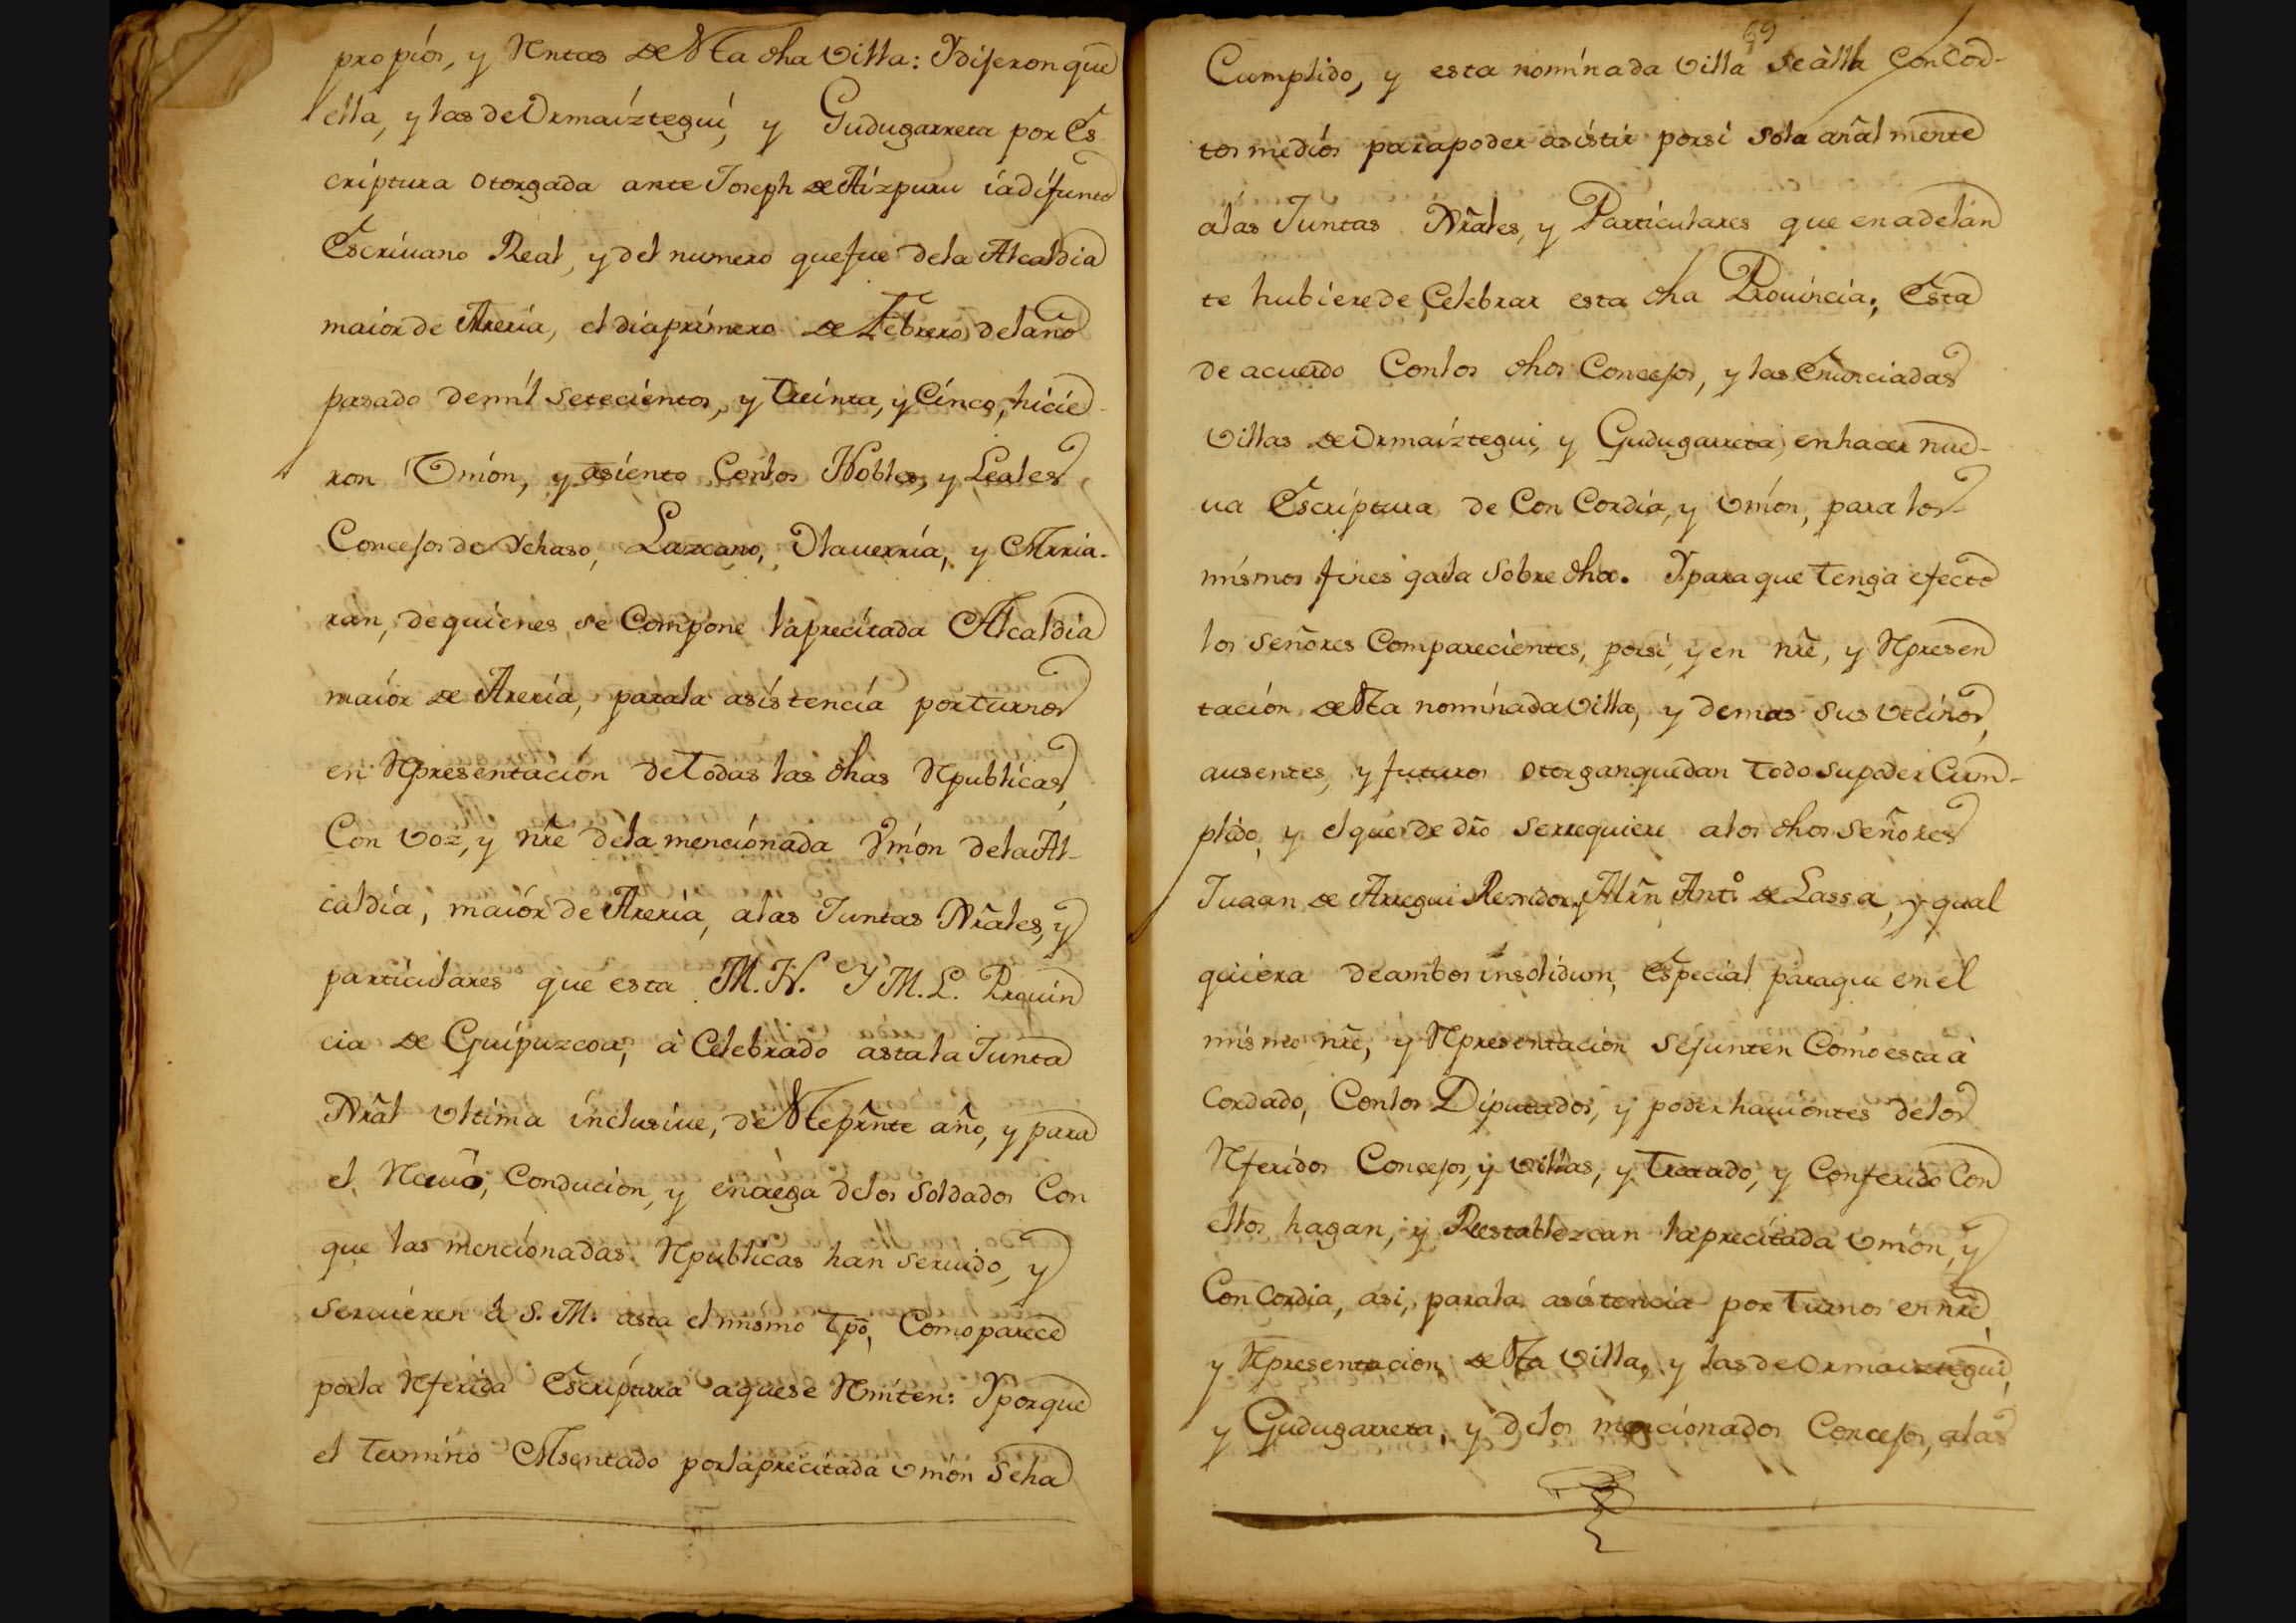 propios, y Rentas de esta dha Villa: Y dijeron que
ella, y las de Ormaiztegui, y Gudugarreta por Es
criptura otorgada ante Joseph de Aizpuru ia difunto
Escriuano Real, y del numero que fue dela Alcaldia
maior de Areria, el dia primero de Febrero del año
pasado de mil setecientos, y Treinta, y Cinco, hicie-
ron Vnion, y asiento Conlos Nobles, y Leales
Concejos de Ychaso, Lazcano, Olauerria, y Arria-
ran, de quienes se Compone la precitada Alcaldia
maior de Areria, parala asistencia por turnos
en Representacion de Todas las dhas Republicas,
Con Voz, y nre dela mencionada Vnion dela Al-
caldia, maior de Areria, alas Juntas Grâles, y
particulares que esta M. N. Y M. L. Prouin
cia de Guipuzcoa, à Celebrado asta la Junta
Grâl Vltima inclusiue, de este prñte año, y para
el, Conducion, y entrega delos Soldados Con
que las mencionadas Republicas han seruido, y
seruieren à S. M. asta el mismo tpô, Como parece
porla Referida Escriptura aquese Remiten: Y porque
el Termino Asentado porla precitada Vnion se ha
69
Cumplido, y esta nominada Villa se àlla Con Cor-
tos medios para poder asistir porsi sola añal mente
alas Juntas Grâles, y Particulares que en adelan
te hubiere de Celebrar esta dha Prouincia; Esta
de acuerdo Conlos dhos Concejos, y las Enunciadas
Villas de Ormaiztegui, y Gudugarreta, en hacer nue-
ua Escriptura de Con Cordia, y Vnion, para los
mismos fines q ala sobre dha. Y para que Tenga efecto
los señores Comparecientes, porsi, y en nrê, y Represen
tacion de esta nominada Villa, y demas sus vecinos,
ausentes, y futuros otorgan que dan Todo su poder Cum-
plido, y el que de dro se rrequiere alos dhos Señores
Juaan de Arregui Rexidor, y Mrn Antº de Lassa, y qual
quiera de ambos insolidum, Especial para que en el
mismo nrê, y Representacion se junten Como esta à
cordado, Conlos Diputados, y poder hauientes delos
Referidos Concejos, y Villas, y Tratado, y Conferido Con
ellos hagan, y Restablezcan la precitada Vnion, y
Con Cordia, asi, parala asistencia por Turnos en nrê,
y Representacion, de esta Villa, y las de Ormaiztegui,
y Gudugarreta, y delos mencionados Concejos, alas